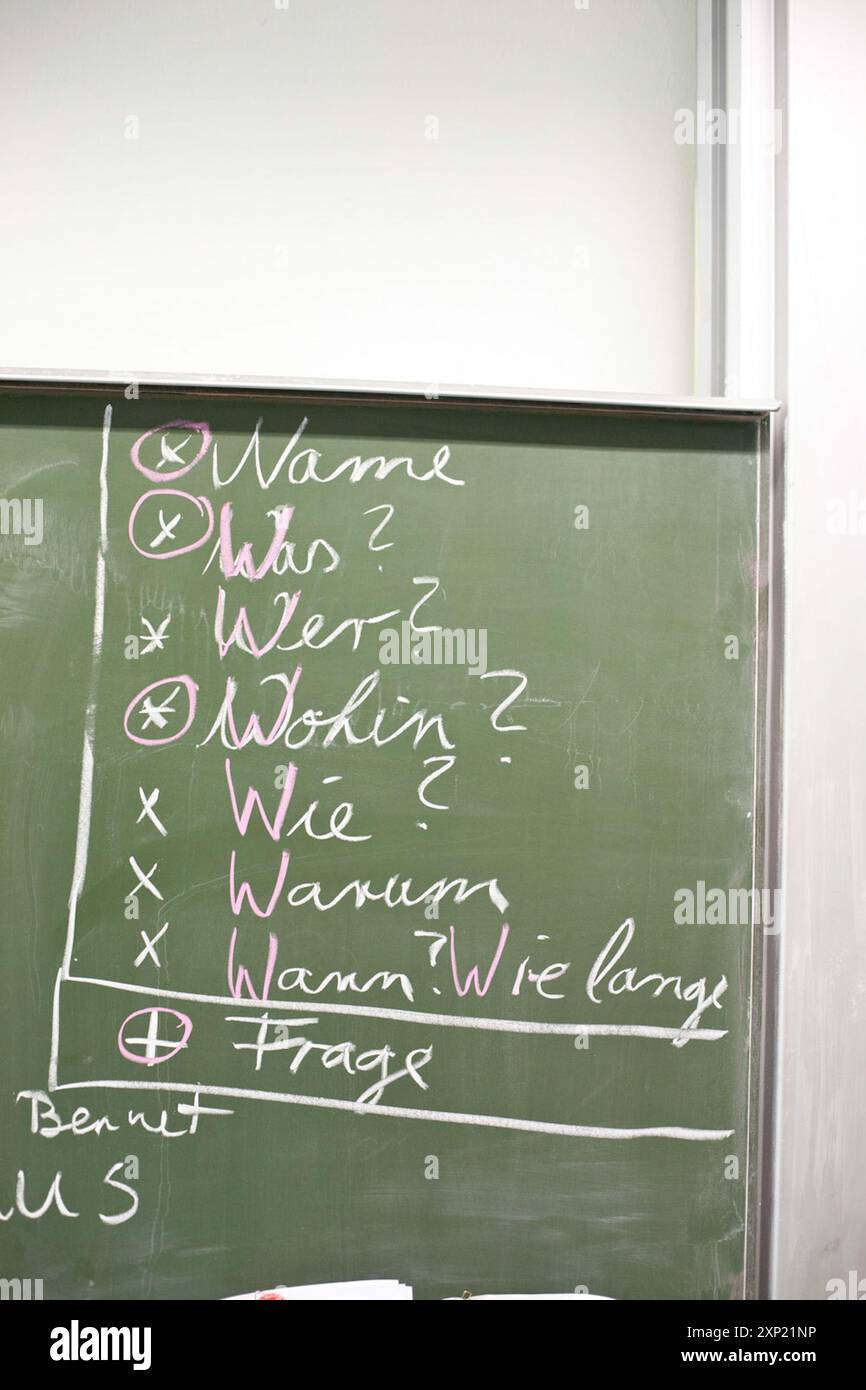 x Name
x Was?
x Wer?
x Wohin?
x Wie?
x Warum
x Wann? Wie lange
+ Frage
Bennet
us
alamy
Image ID: 2XP21NP
www.alamy.com